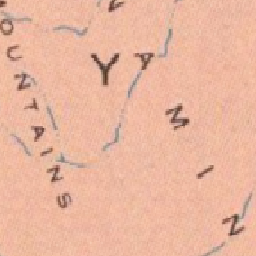 OUNTAINS
Y
A
MIN